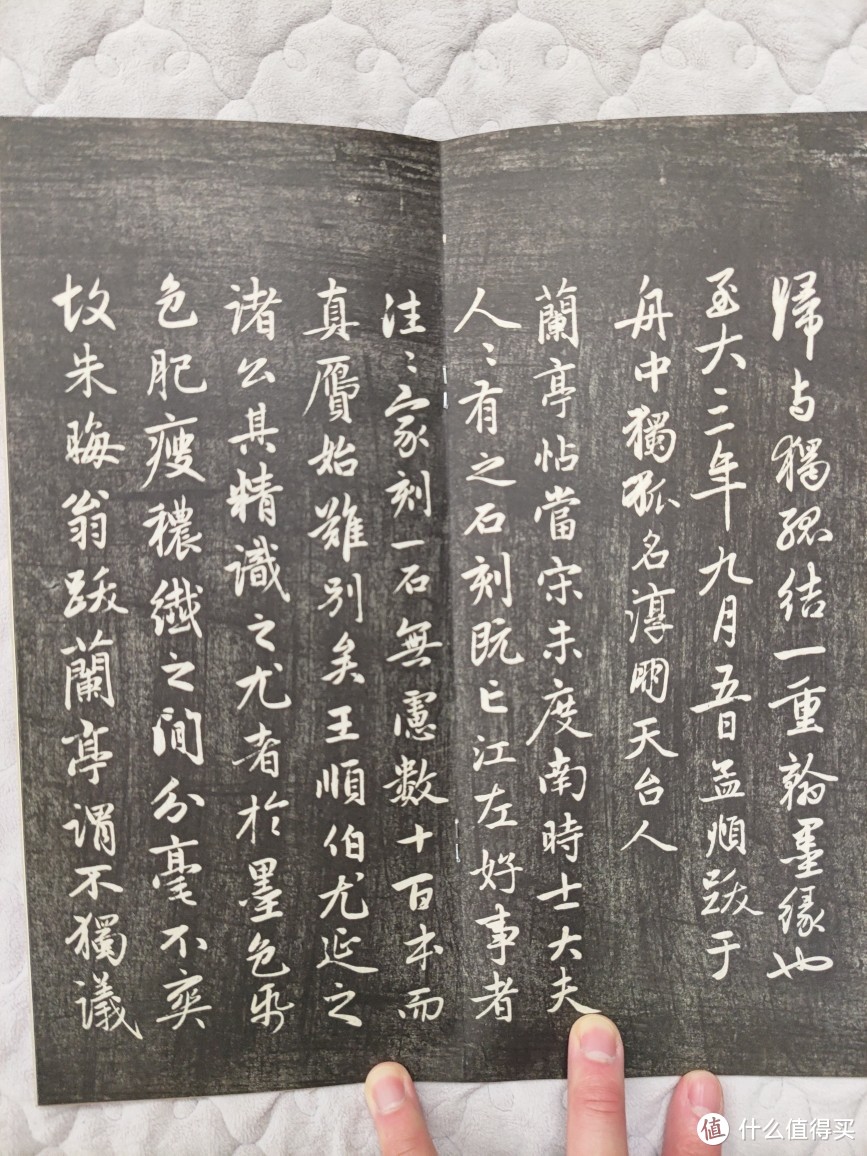 歸与獨孤結一重翰墨緣也
至大三年九月五日孟頫跋于
舟中獨孤名淳朋天台人
蘭亭帖當宋未度南時士大夫
人〻有之石刻既亡江左好事者
往〻家刻一石無慮數十百本而
真贗始難別矣王順伯尤延之
諸公其精識之尤者於墨色紙
色肥瘦穠纖之間分毫不爽
故朱晦翁跋蘭亭謂不獨議
值 什么值得买